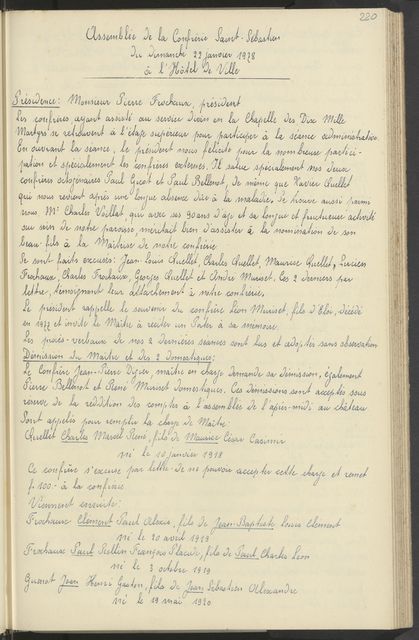 220
Assemblée de la Confrérie Saint-Sébastien
du dimanche 22 janvier 1978
à l'Hôtel de Ville
Présidence: Monsieur Pierre Frochaux, président
Les confrères ayant assisté au service divin en la Chapelle des Dix Mille
Martyrs se retrouvent à l'étage supérieur pour participer à la séance administrative
En ouvrant la séance, le président nous félicite pour la nombreuse partici-
pation et spécialement les confrères externes. Il salue spécialement nos deux
confrères octogénaires Paul Gicot et Paul Bellenot, de même que Xavier Ruellet
qui nous revient après une longue absence dûe à la maladie. Se trouve aussi parmi
nous Mr Charles Veillat, qui avec ses 90 ans d'âge et sa longue et fructueuse activité
au sein de notre paroisse, méritait bien d'assister à la nomination de son
beau-fils à la Maîtrise de notre confrérie
Se sont faits excuser: Jean-Louis Ruellet, Charles Ruellet, Maurice Ruellet, Lucien
Frochaux, Charles Frochaux, Georges Ruellet et André Muriset. Les 2 derniers par
lettre, témoignant leur attachement à notre confrérie.
Le président rappelle le souvenir du confrère Léon Muriset, fils d'Eloi, décédé
en 1977 et invite le Maître à réciter un Pater à sa mémoire.
Les procès-verbaux de nos 2 dernières séances sont lus et adoptés sans observation
Démission du Maître et des 2 domestiques:
Le Confrère Jean-Pierre Digier, maître en charge demande sa démission, également
Pierre Bellenot et René Muriset domestiques. Ces démissions sont acceptés sous
réserve de la reddition des comptes à l'assemblée de l'après-midi au château
Sont appelés pour remplir la charge de Maître:
Ruellet Charles Marcel René, fils de Maurice César Casimir
né le 10 janvier 1918
Ce confrère s'excuse par lettre de ne pouvoir accepter cette charge et remet
f. 100.- à la confrérie
Viennent ensuite:
Frochaux Clément Paul Alexis, fils de Jean-Baptiste Louis Clément
né le 20 avril 1919
Frochaux Paul François Placide, fils de Paul Charles Léon
né le 3 octobre 1919
Guenot Jean Henri Gaston, fils de Jean Sébastien Alexandre
né le 19 mai 1920